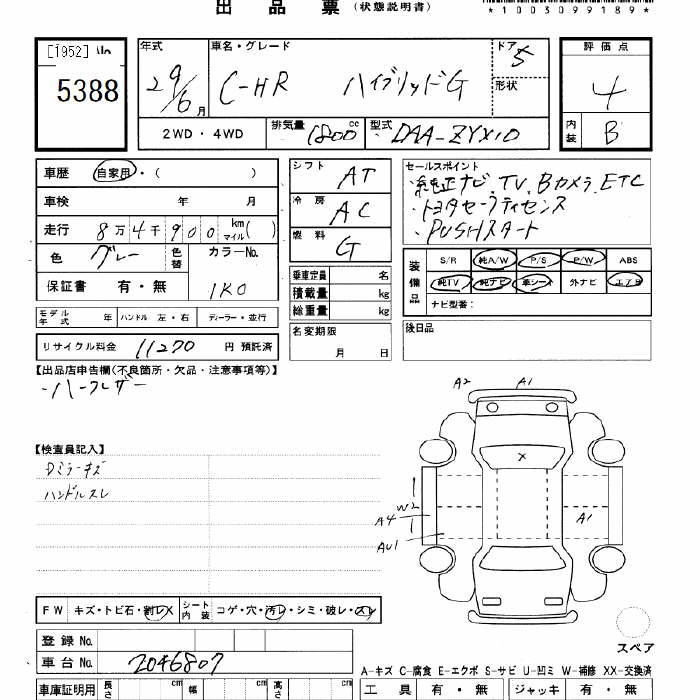 出品票（状態説明書）
*1003099189*
[1952]
5388
年式
29/6月
車名・グレード
C-HR ハイブリッドG
ドア
5
形状
評価点
4
内装
B
2WD・4WD
排気量 1800cc
型式 DAA-ZYX10
車歴 自家用・( )
車検 年 月
走行 8万4千900km マイル( )
色 グレー
色替
カラーNo. 1K0
保証書 有・無
シフト AT
冷房 AC
燃料 G
乗車定員 名
積載量 kg
総重量 kg
名変期限 月 日
セールスポイント
・純正ナビ.TV.Bカメラ.ETC
・トヨタセーフティセンス
・PUSHスタート
装備品
S/R 純A/W P/S P/W ABS
純TV 純ナビ 革シート 外ナビ エアB
ナビ型番：
後日品
モデル年式 年 ハンドル 左・右 ディーラー・並行
リサイクル料金 11270 円 預託済
【出品店申告欄(不良箇所・欠品・注意事項等)】
・ハーフレザー
【検査員記入】
Dミラーキズ
ハンドルスレ
A2 A1
X
W2
A4
A1
AU1
スペア
FW キズ・トビ石・割レX シート内装 コゲ・穴・汚レ・シミ・破レ・スレ
登録No.
車台No. 2046807
A-キズ C-腐食 E-エクボ S-サビ U-凹ミ W-補修 XX-交換済
車庫証明用 長さ cm 幅 cm 高さ cm
工具 有・無 ジャッキ 有・無